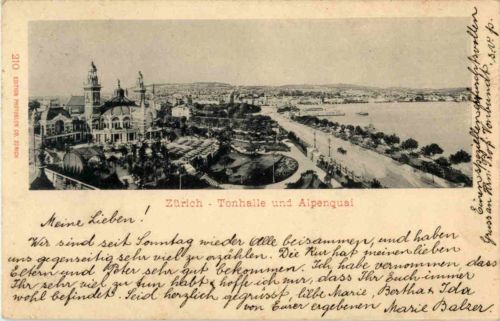 210 EDITION PHOTOGLOB CO. ZÜRICH
Zürich - Tonhalle und Alpenquai
Meine Lieben!
Wir sind seit Sonntag wieder Alle beisammen, und haben
uns gegenseitig sehr viel zu erzählen. Die Kur hat meinen lieben
Eltern und Peter sehr gut bekommen. Ich habe vernommen, dass
Ihr sehr viel zu tun habt & hoffe ich nur, dass Ihr Euch immer
wohl befindet. Seid herzlich gegrüsst, liebe Marie, Bertha & Ida
von Eurer ergebenen Marie Balzer
Einen speziellen
Gruss an